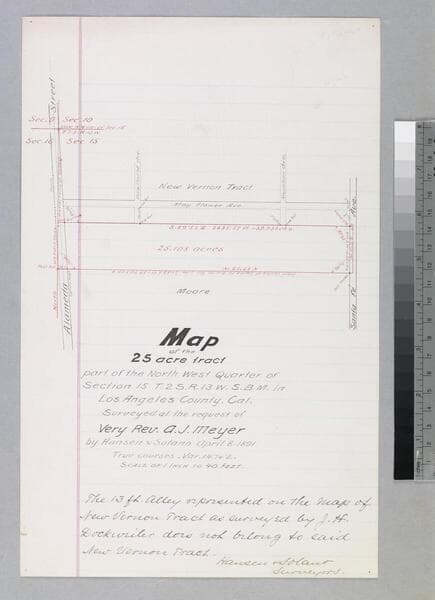 Street
Sec. 9 Sec. 10
Sec. 16 Sec. 15
New Vernon Tract
May Flower Ave.
Ave.
25.103 acres
Moore
Alameda
Santa Fe
Map
of the
25 acre tract
part of the North West Quarter of
Section 15 T. 2 S. R. 13 W. S. B. M. in
Los Angeles County, Cal.
Surveyed at the request of
Very Rev. A. J. Meyer
by Hansen & Solano April 8. 1891
True courses. Var. 14°½ E.
Scale of 1 inch to 40 feet.
The 13 ft. Alley represented on the Map of
New Vernon Tract as surveyed by J. H.
Dockweiler does not belong to said
New Vernon Tract.
Hansen & Solano
Surveyors.